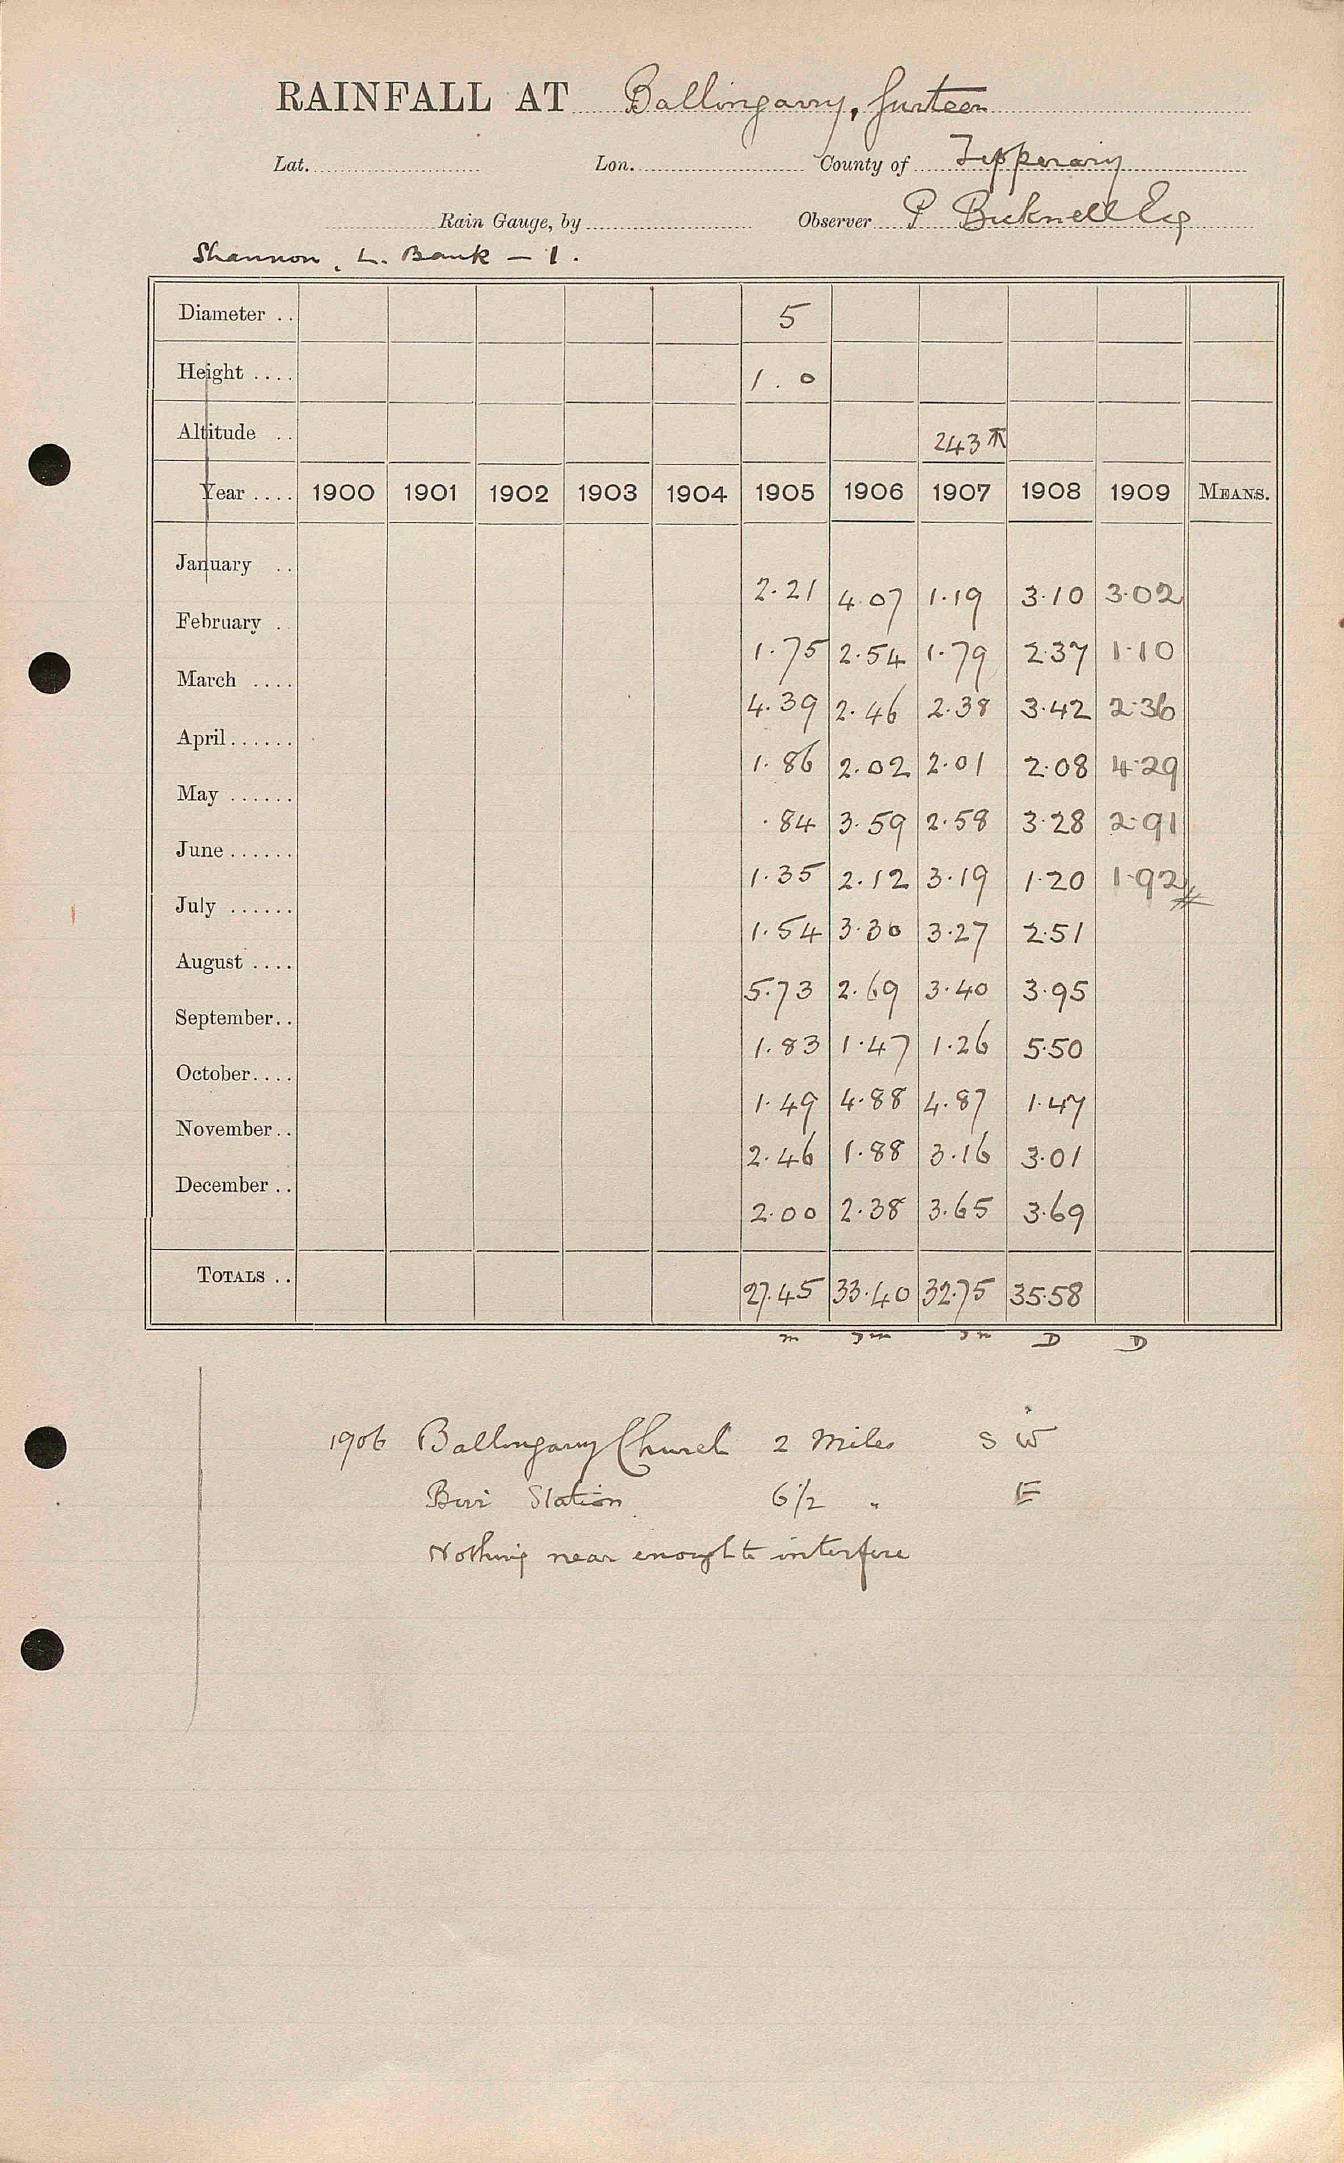 RAINFALL AT Ballingarry, Gurteen
Lat. Lon. County of Tipperary
Rain Gauge, by Observer P Bicknell Esq
Shannon, L. Bank – 1.
Diameter .. 5
Height .... 1.0
Altitude .. 243
Year .... 1900 1901 1902 1903 1904 1905 1906 1907 1908 1909 MEANS.
January .. 2.21 4.07 1.19 3.10 3.02
February . 1.75 2.54 1.79 2.37 1.10
March .... 4.39 2.46 2.38 3.42 2.36
April...... 1.86 2.02 2.01 2.08 4.29
May ...... .84 3.59 2.58 3.28 2.91
June...... 1.35 2.12 3.19 1.20 1.92
July ...... 1.54 3.30 3.27 2.51
August .... 5.73 2.69 3.40 3.95
September.. 1.83 1.47 1.26 5.50
October.... 1.49 4.88 4.87 1.47
November.. 2.46 1.88 3.16 3.01
December .. 2.00 2.38 3.65 3.69
TOTALS .. 27.45 33.40 32.75 35.58
m D D
1906 Ballingarry Church 2 Miles S W
Birr Station 6½ " E
Nothing near enough to interfere